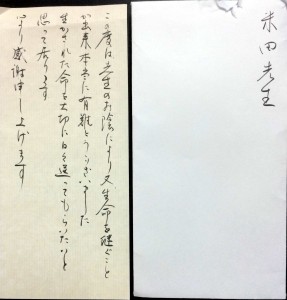 米田先生
この度は先生のお陰により又生命を継ぐこと
が出来本当に有難とうございました
生かされた命を大切に日々送ってもらいたいと
思って居ります
心より感謝申し上げます